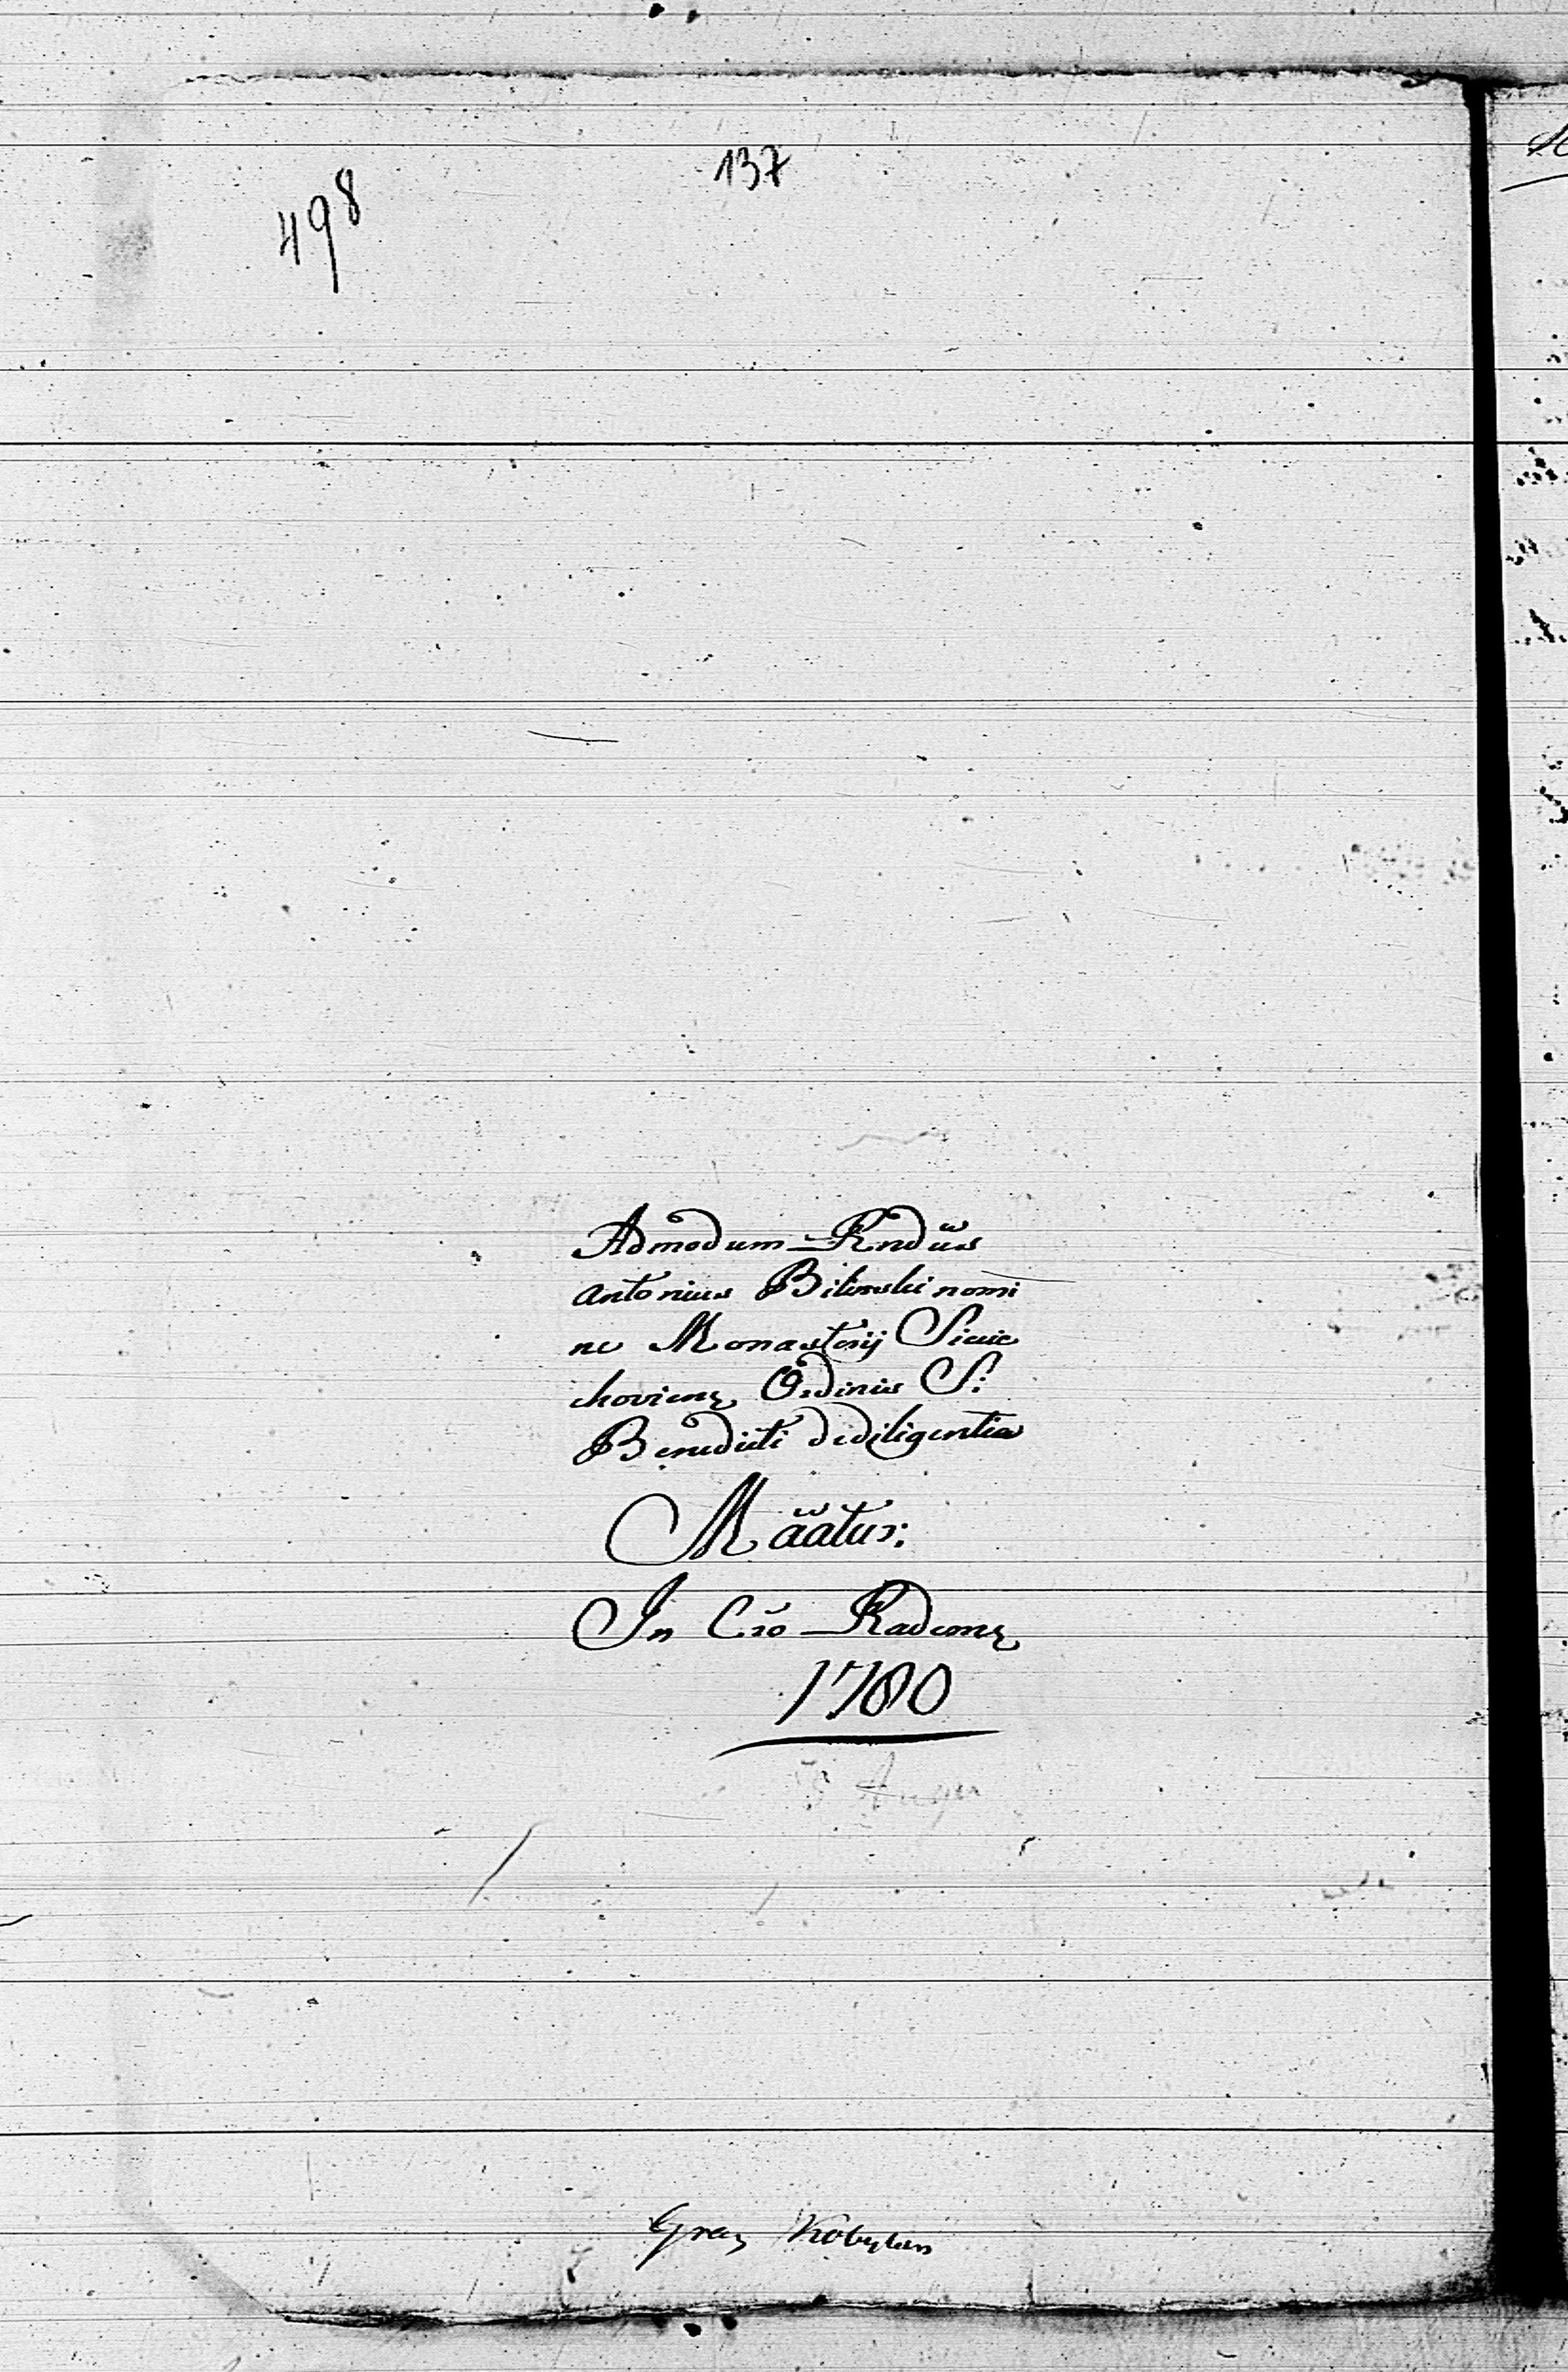 137
498
Admodum Rndus
Antonius Bilinski nomi
ne Monasterij Sieie
choviens Ordinis S:
Benedicti de diligentia
Mäatus:
In Cro Radoms
1780
Granz Kobylan